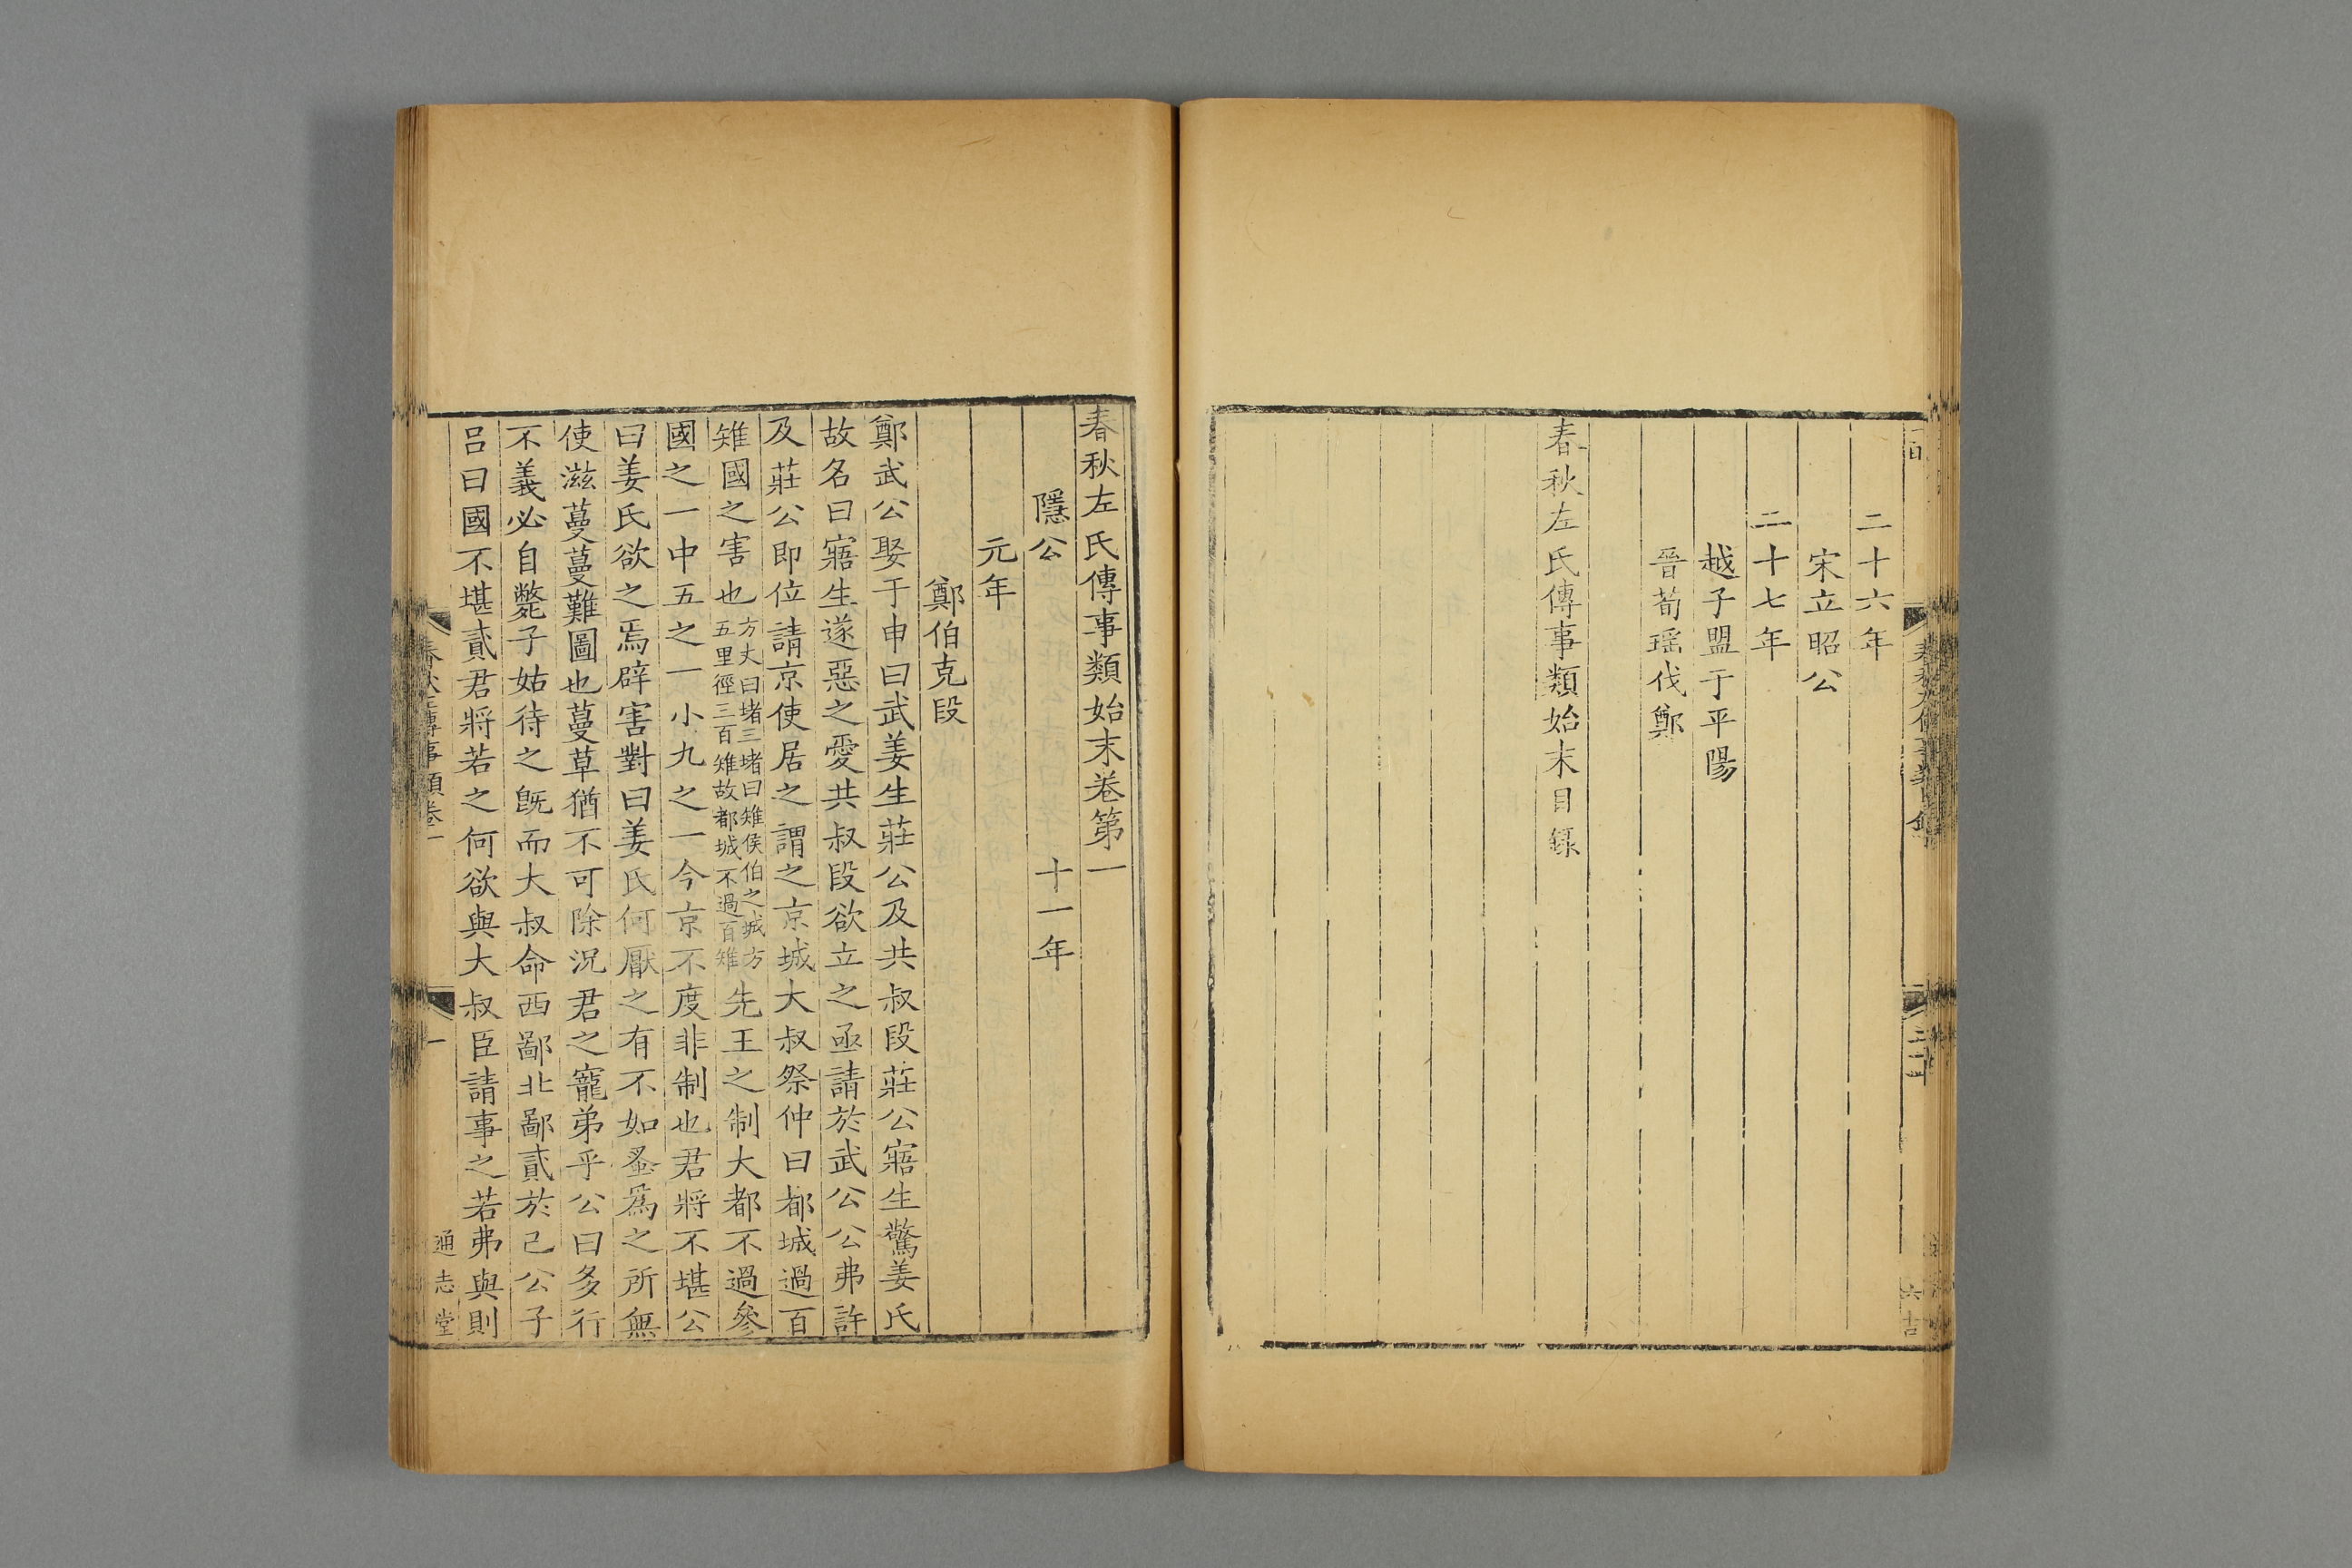 二十六年
宋立昭公
二十七年
越子盟于平陽
晉荀瑤伐鄭
春秋左氏傳事類始末目錄
春秋左氏傳事類始末卷第一
隱公 十一年
元年
鄭伯克段
鄭武公娶于申曰武姜生莊公及共叔段莊公寤生驚姜氏
故名曰寤生遂惡之愛共叔段欲立之亟請於武公公弗許
及莊公即位請京使居之謂之京城大叔祭仲曰都城過百
雉國之害也方丈曰堵三堵曰雉侯伯之城方五里徑三百雉故都城不過百雉先王之制大都不過參
國之一中五之一小九之一今京不度非制也君將不堪公
曰姜氏欲之焉辟害對曰姜氏何厭之有不如蚤爲之所無
使滋蔓蔓難圖也蔓草猶不可除況君之寵弟乎公曰多行
不義必自斃子姑待之旣而大叔命西鄙北鄙貳於己公子
呂曰國不堪貳君將若之何欲與大叔臣請事之若弗與則
春秋左傳事類卷一
一
通志堂